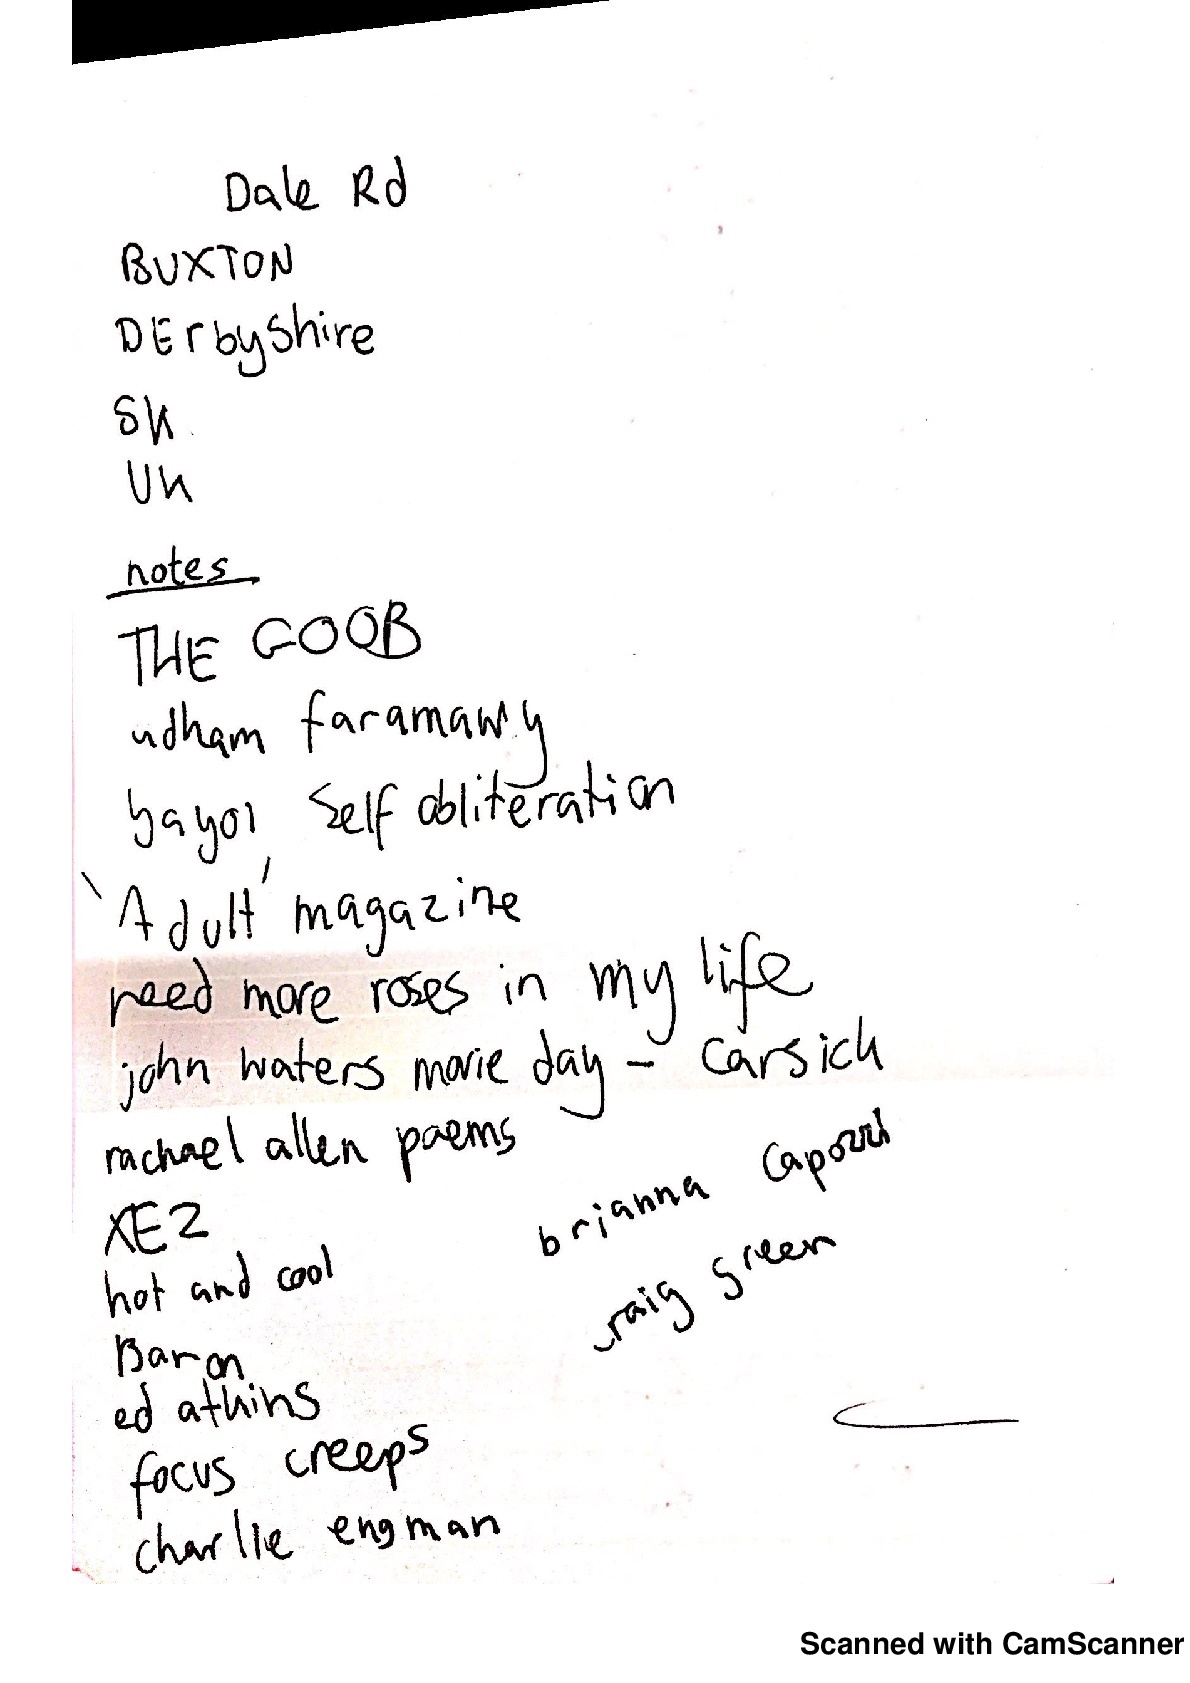 Dale Rd
BUXTON
DErbyshire
SK
UK
notes
THE GOOB
udham faramawy
yayoi Self obliteration
'Adult' magazine
need more roses in my life
john waters movie day - carsick
rachael allen poems
XE2
hot and cool
Baron
ed atkins
focus creeps
charlie engman
brianna Capozzi
craig green
Scanned with CamScanner